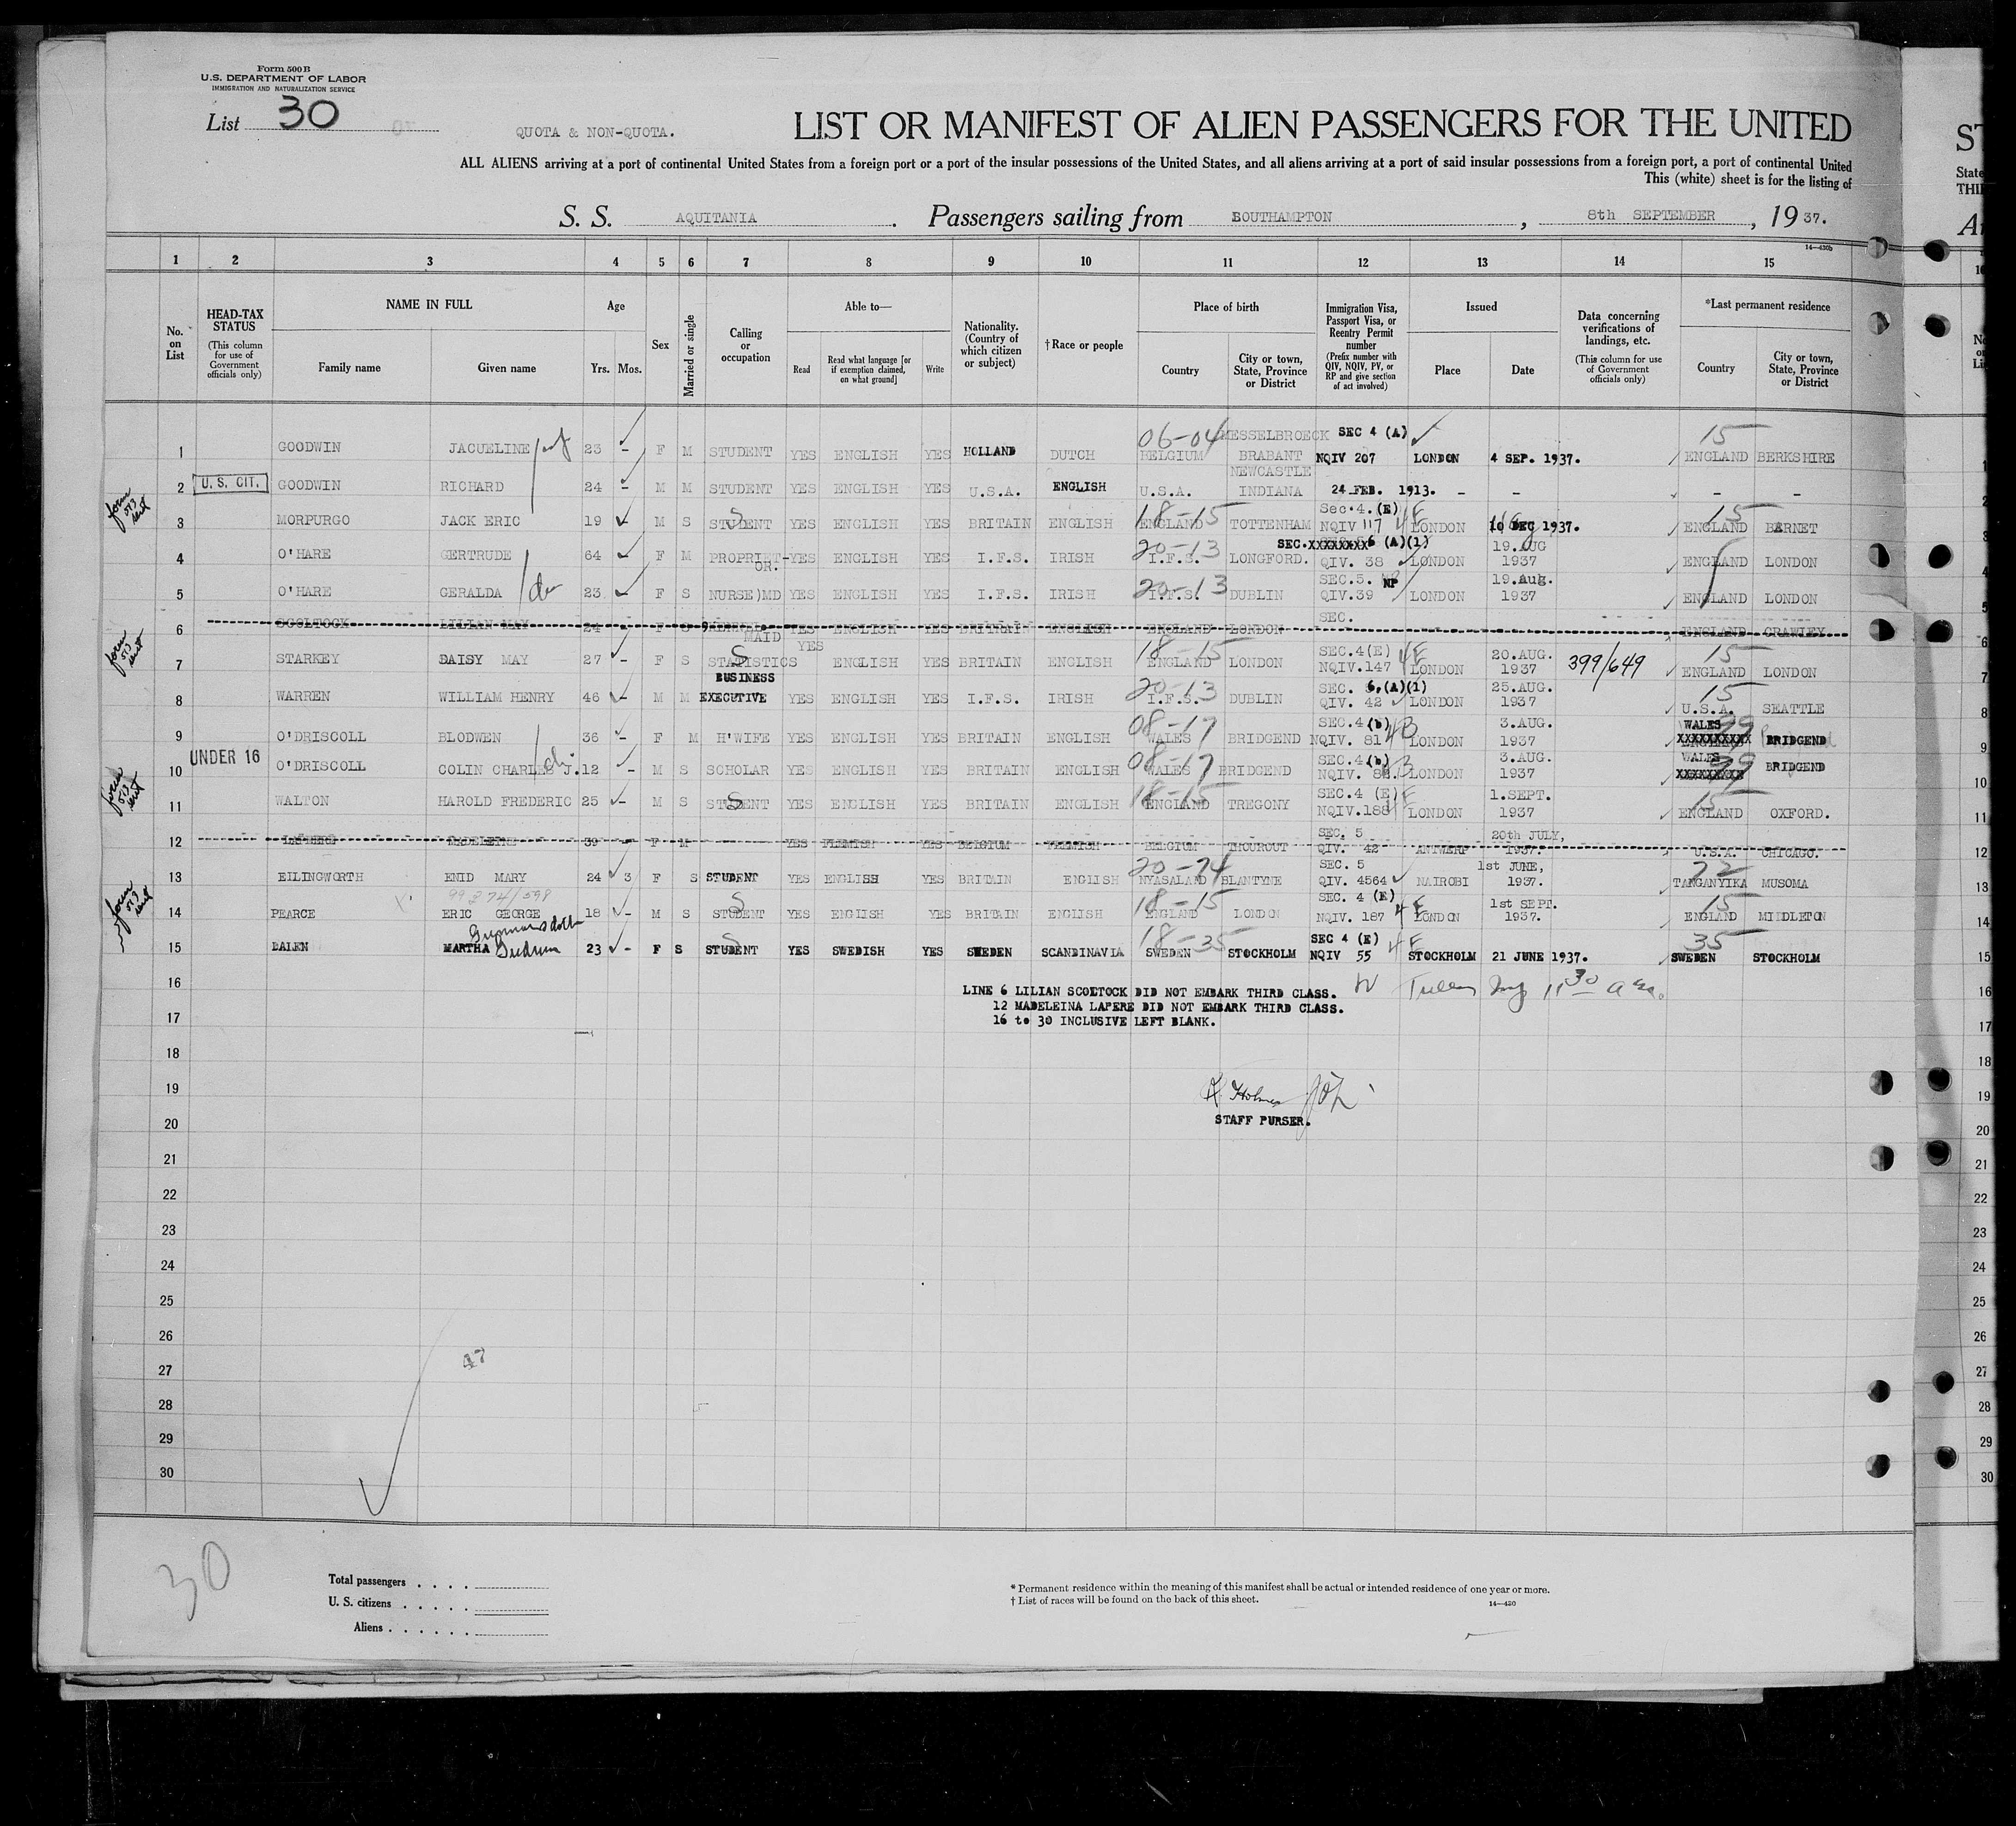 Form 500 B
U.S. DEPARTMENT OF LABOR
IMMIGRATION AND NATURALIZATION SERVICE
List 30
QUOTA & NON-QUOTA.
LIST OR MANIFEST OF ALIEN PASSENGERS FOR THE UNITED
ALL ALIENS arriving at a port of continental United States from a foreign port or a port of the insular possessions of the United States, and all aliens arriving at a port of said insular possessions from a foreign port, a port of continental United
This (white) sheet is for the listing of
S. S. AQUITANIA. Passengers sailing from SOUTHAMPTON, 8th SEPTEMBER, 1937.
14—430b
1 2 3 4 5 6 7 8 9 10 11 12 13 14 15
No. on List
HEAD-TAX STATUS (This column for use of Government officials only)
NAME IN FULL Family name Given name
Age Yrs. Mos.
Sex
Married or single
Calling or occupation
Able to— Read Read what language [or if exemption claimed, on what ground] Write
Nationality. (Country of which citizen or subject)
† Race or people
Place of birth Country City or town, State, Province or District
Immigration Visa, Passport Visa, or Reentry Permit number (Prefix number with QIV, NQIV, PV, or RP and give section of act involved)
Issued Place Date
Data concerning verifications of landings, etc. (This column for use of Government officials only)
*Last permanent residence Country City or town, State, Province or District
1 GOODWIN JACUELINE 23 - F M STUDENT YES ENGLISH YES HOLLAND DUTCH 06-04 BELGIUM MESSELBROECK BRABANT SEC 4 (A) NQIV 207 LONDON 4 SEP. 1937. 15 ENGLAND BERKSHIRE
2 U.S. CIT. GOODWIN RICHARD 24 - M M STUDENT YES ENGLISH YES U.S.A. ENGLISH U.S.A. NEWCASTLE INDIANA 24 FEB. 1913. - - - -
form 573 sent
3 MORPURGO JACK ERIC 19 - M S STUDENT S YES ENGLISH YES BRITAIN ENGLISH 18-15 ENGLAND TOTTENHAM Sec.4.(E) NQIV 117 4E LONDON 10 DEC 1937. 15 ENGLAND BARNET
4 O'HARE GERTRUDE 64 - F M PROPRIET-OR. YES ENGLISH YES I.F.S. IRISH 20-13 I.F.S. LONGFORD. SEC.XXXXXXXX6 (A)(1) QIV. 38 LONDON 19.AUG 1937 ENGLAND LONDON
5 O'HARE GERALDA 23 - F S NURSE)MD YES ENGLISH YES I.F.S. IRISH 20-13 I.F.S. DUBLIN SEC.5. NP QIV.39 LONDON 19.Aug. 1937 ENGLAND LONDON
6 SCOLTOCK LILIAN MAY 24 - F S MAID YES ENGLISH YES BRITAIN ENGLISH ENGLAND LONDON SEC. ENGLAND CRAWLEY
form 573 sent
7 STARKEY DAISY MAY 27 - F S STATISTICS S YES ENGLISH YES BRITAIN ENGLISH 18-15 ENGLAND LONDON SEC.4(E) NQIV.147 4E LONDON 20.AUG. 1937 399/649 15 ENGLAND LONDON
8 WARREN WILLIAM HENRY 46 - M M BUSINESS EXECUTIVE YES ENGLISH YES I.F.S. IRISH 20-13 I.F.S. DUBLIN SEC. 6,(A)(1) QIV. 42 LONDON 25.AUG. 1937 15 U.S.A. SEATTLE
9 O'DRISCOLL BLODWEN 36 - F M H'WIFE YES ENGLISH YES BRITAIN ENGLISH 08-17 WALES BRIDGEND SEC.4(b) NQIV. 81 4B LONDON 3.AUG. 1937 WALES XXXXXXXXXX BRIDGEND
10 UNDER 16 O'DRISCOLL COLIN CHARLES J. 12 - M S SCHOLAR YES ENGLISH YES BRITAIN ENGLISH 08-17 WALES BRIDGEND SEC.4(b) NQIV. LONDON 3.AUG. 1937 WALES XXXXXXXXX BRIDGEND
form 573 sent
11 WALTON HAROLD FREDERIC 25 - M S STUDENT S YES ENGLISH YES BRITAIN ENGLISH 18-15 ENGLAND TREGONY SEC.4 (E) NQIV.188 LONDON 1.SEPT. 1937 15 ENGLAND OXFORD.
12 MADELEINE 39 - F M YES FLEMISH YES BELGIUM FLEMISH BELGIUM THOUROUT SEC. 5 QIV. 42 ANTWERP 20th JULY, 1937. U.S.A. CHICAGO.
13 EILINGWORTH ENID MARY 24 3 F S STUDENT YES ENGLISH YES BRITAIN ENGLISH 20-74 NYASALAND BLANTYNE SEC. 5 QIV. 4564 NAIROBI 1st JUNE, 1937. 72 TANGANYIKA MUSOMA
form 573 sent
99 274/598
14 PEARCE ERIC GEORGE 18 - M S STUDENT S YES ENGLISH YES BRITAIN ENGLISH 18-15 ENGLAND LONDON SEC. 4 (E) NQIV. 187 4E LONDON 1st SEPT. 1937. 15 ENGLAND MIDDLETON
15 DALEN MARTHA 23 - F S STUDENT S YES SWEDISH YES SWEDEN SCANDINAVIA 18-35 SWEDEN STOCKHOLM SEC 4 (E) NQIV 55 4E STOCKHOLM 21 JUNE 1937. 35 SWEDEN STOCKHOLM
16 LINE 6 LILIAN SCOLTOCK DID NOT EMBARK THIRD CLASS.
12 MADELEINA LAPERE DID NOT EMBARK THIRD CLASS.
17 16 to 30 INCLUSIVE LEFT BLANK.
18
19 Holmes
20 STAFF PURSER.
21
22
23
24
25
26
27 47
28
29
30
30
Total passengers
U. S. citizens
Aliens
* Permanent residence within the meaning of this manifest shall be actual or intended residence of one year or more.
† List of races will be found on the back of this sheet.
14—430